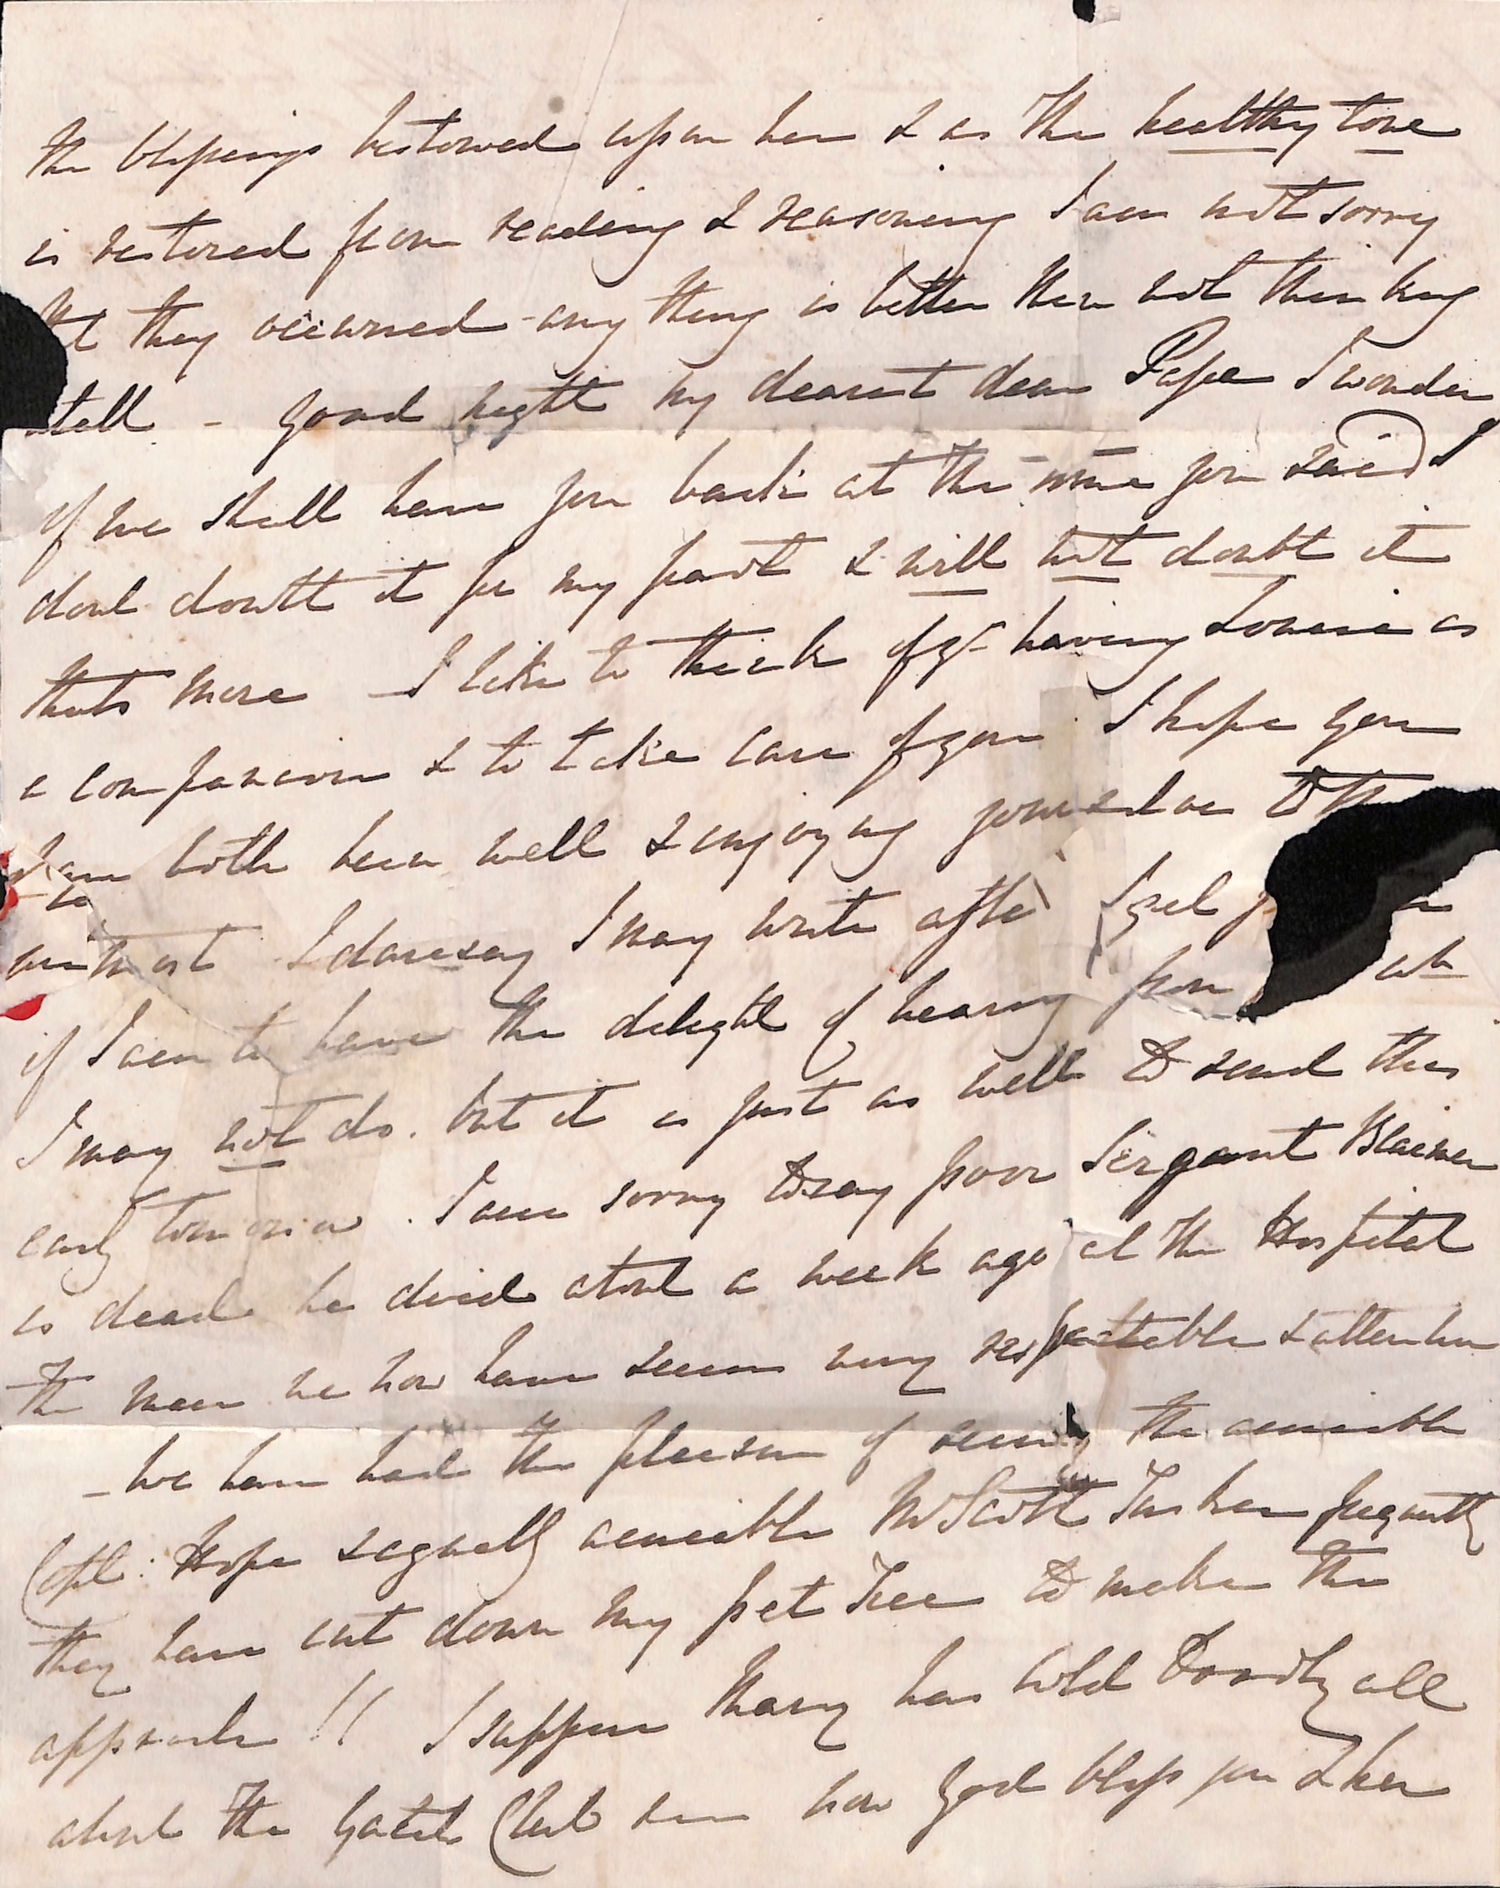 the blessings bestowed upon her & as the healthy tone
is restored from reading & reasoning I am not sorry
that they occurred - any thing is better than not thinking
at all - good night my dearest dear Papa I wonder
if we shall have you back at the time you said I
dont doubt it for my part & will not doubt it
thats more - I like to think of yr having Louisa as
a companion & to take care of you I hope you
have both been well & enjoying yourselves to the
utmost I daresay I may write after I get
if I am to have the delight of hearing from
I may not do. but it is just as well to send this
early tomorrow. I am sorry to say poor Sergeant
is dead he died about a week ago at the Hospital
the man we now have seems very respectable & attentive
- We have had the pleasure of seeing the amiable
Capt: Hope & equally amiable Mr Scott frequently
they have cut down my pet Tree to make the
approach !! I suppose Mary has told all
about the Yatch Club now God bless you & her